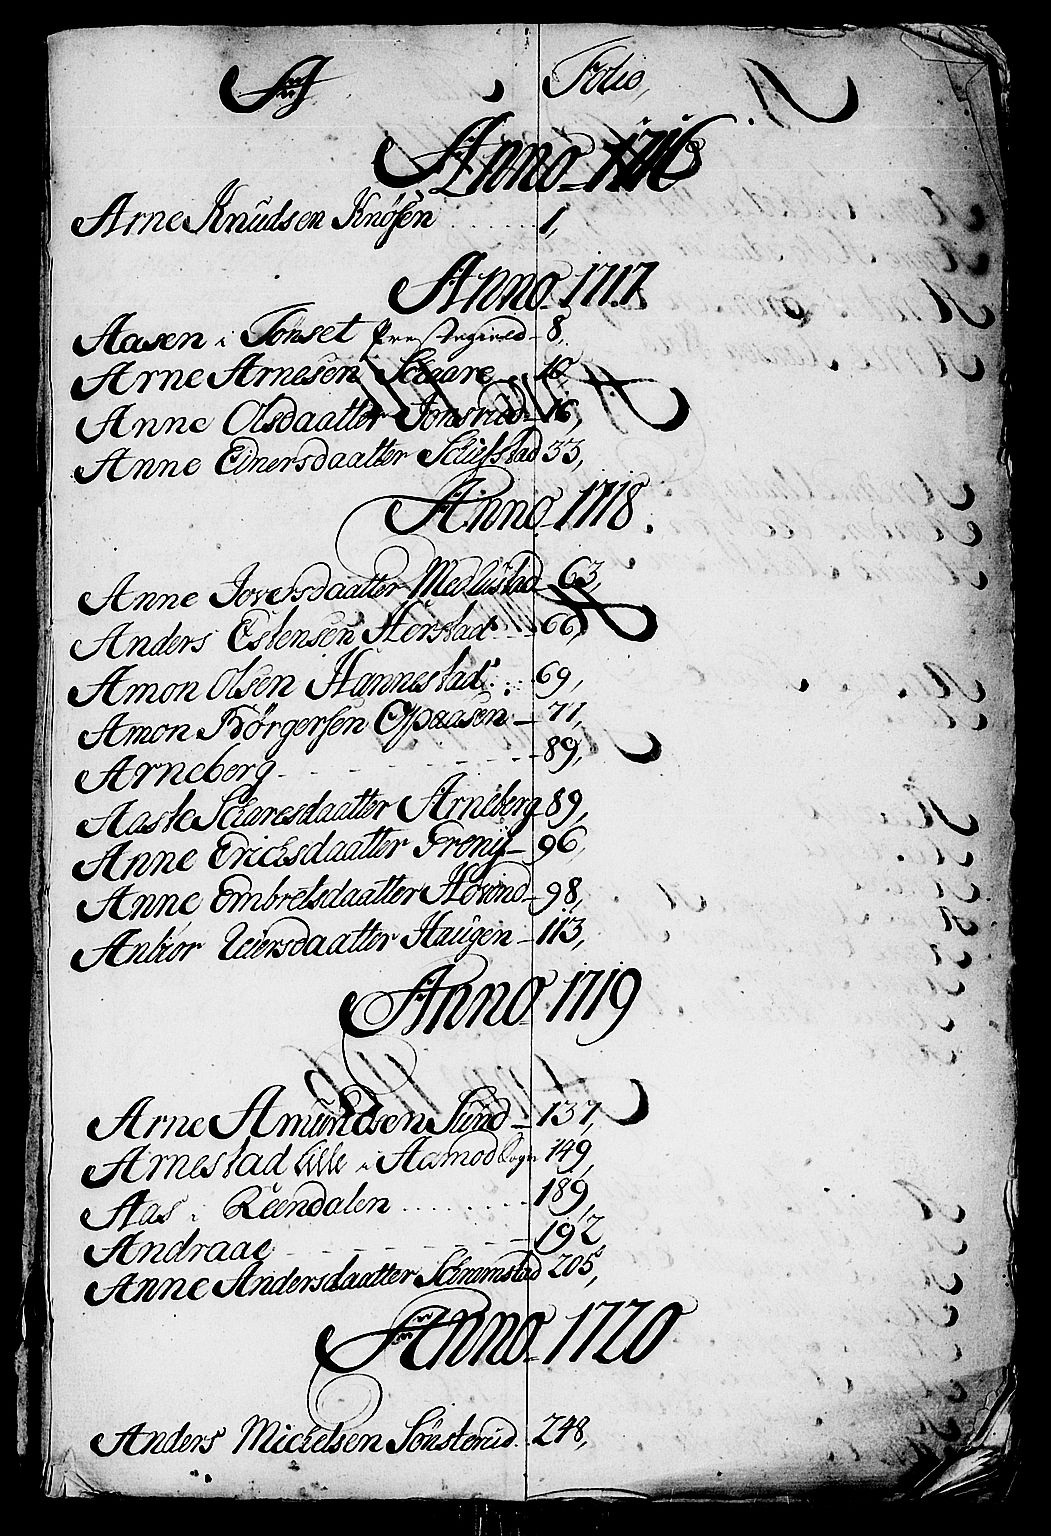 A Folio,
Anno 1716
Arne Knudsen Knosen 1,
Anno 1717
Aasen i Tönset Præstegield 8.
Arne Arnesen Schare 10
Anne Olsdaatter Jonsrud 16,
Anne Einersdaatter Schiefstad 33,
Anno 1718.
Anne Joversdaatter 63,
Anders Estensen Herstad 66,
Amon Olsen Hannestad 69,
Amon Börgersen Opaasen 71,
Arneberg 89,
Aaste Scharesdaatter Arneberg 89,
Anne Erichsdaatter 96,
Anne Embretsdaatter Hovind 98,
Ankior Iversdaatter Haugen 113,
Anno 1719
Arne Amundsen Sund 137,
Arnestad Lille i Aamod Sogn 149,
Aas i Reendalen 189,
Andraae 192
Anne Andersdaatter Schramstad 205,
Anno 1720
Anders Michelsen Sönsterud 248,